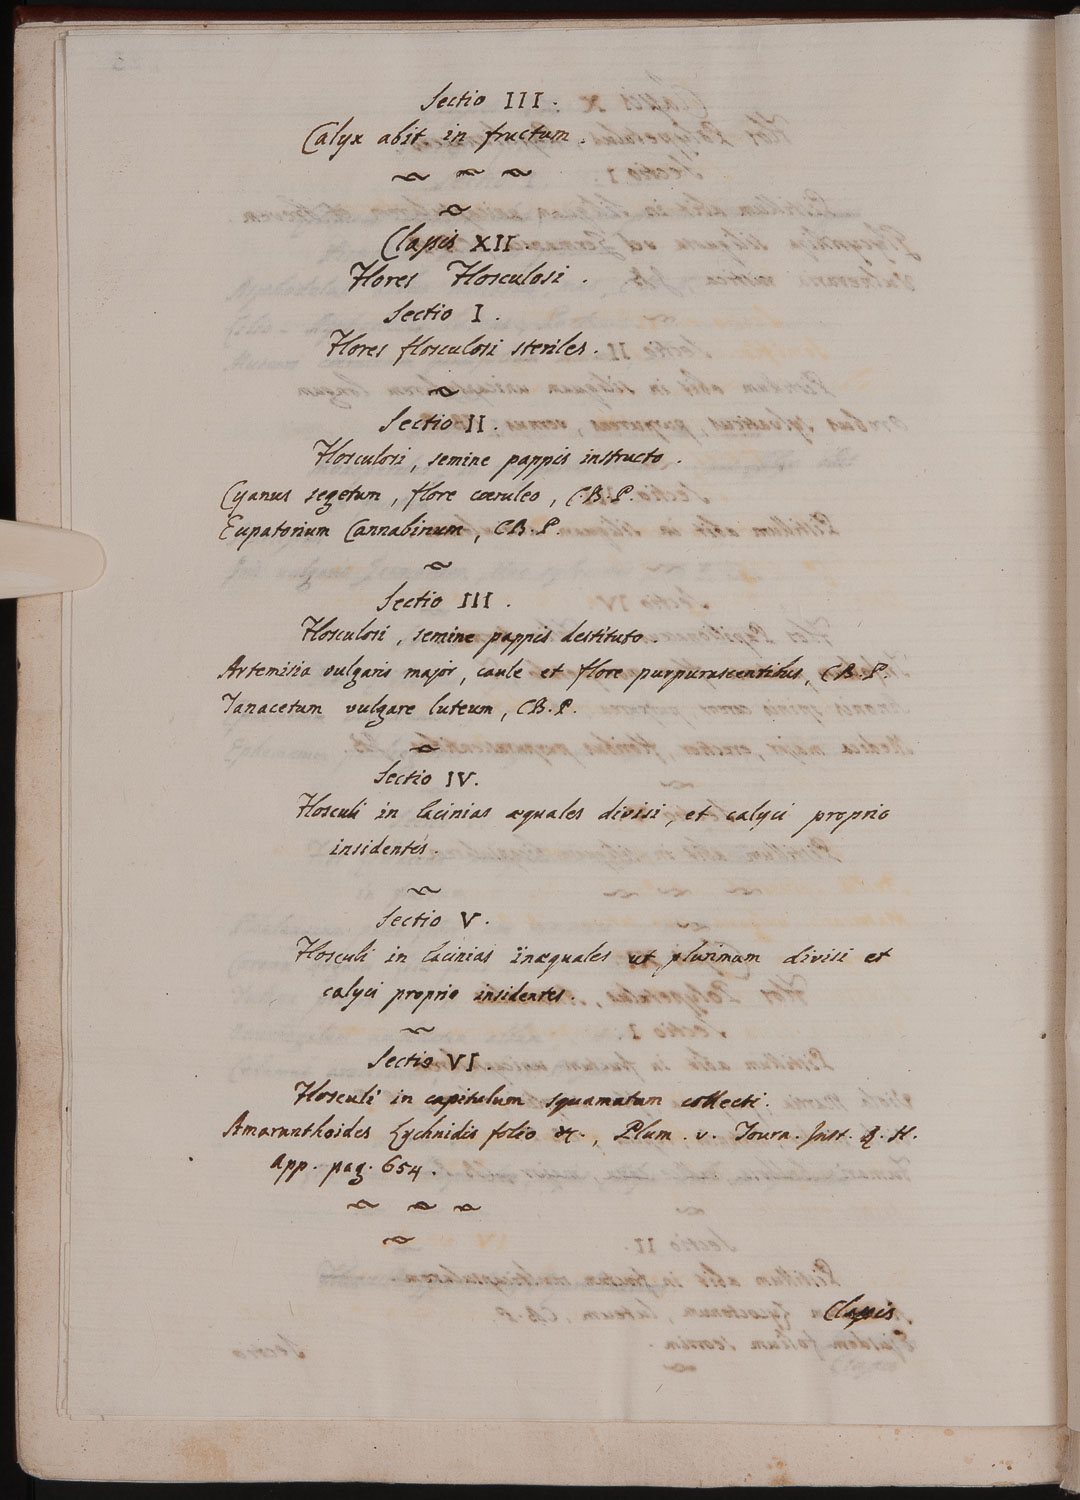 Sectio III.
Calyx abit in fructum.
Classis XII.
Flores Flosculosi.
Sectio I.
Flores flosculosi steriles.
Sectio II.
Flosculosi, semine pappis instructo.
Cyanus segetum, flore cœruleo, C.B.P.
Eupatorium Cannabinum, CB.P.
Sectio III.
Flosculosi, semine pappis destituto.
Artemisia vulgaris major, caule et flore purpurascentibus, CB.P.
Tanacetum vulgare luteum, CB.P.
Sectio IV.
Flosculi in lacinias æquales divisi, et calyci proprio
insidentes.
Sectio V.
Flosculi in lacinias inæquales ut plurimum divisi et
calyci proprio insidentes.
Sectio VI.
Flosculi in capitulum squamatum collecti.
Amaranthoides Lychnidis folio &c., Plum. v. Tourn. Inst. R. H.
App. pag. 654.
Classis